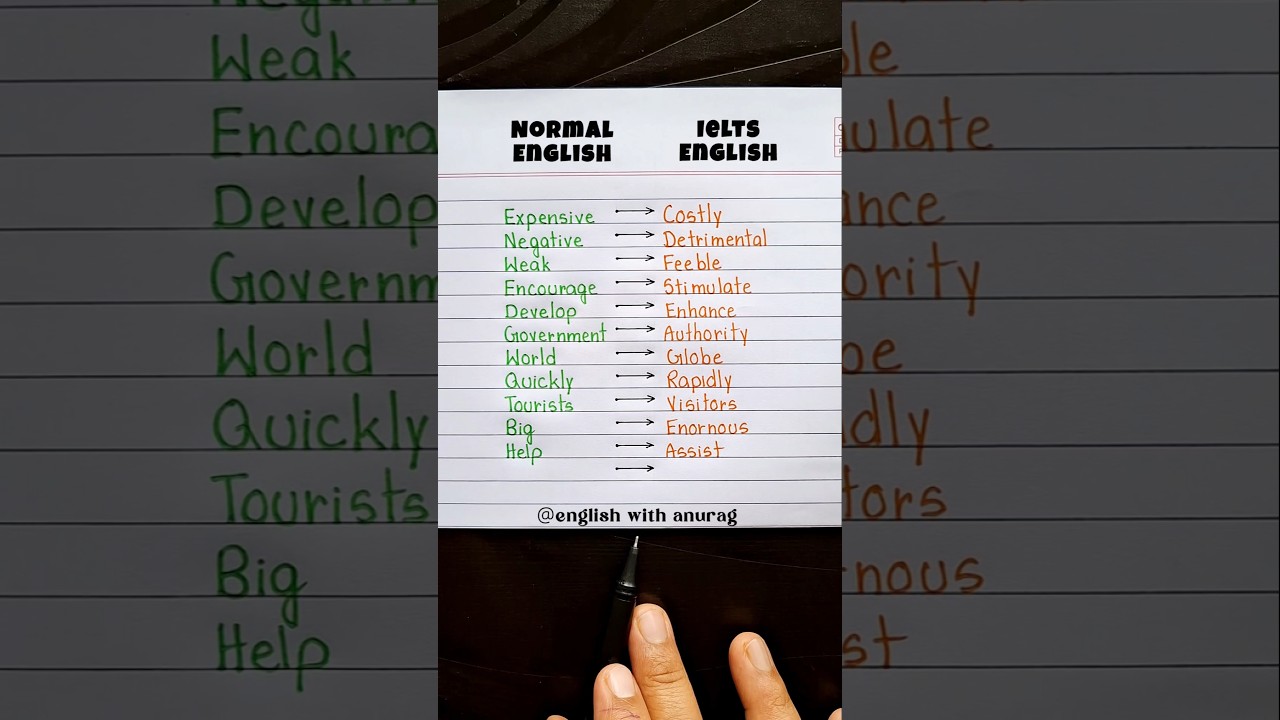 NORMAL ENGLISH IELTS ENGLISH
Expensive → Costly
Negative → Detrimental
Weak → Feeble
Encourage → Stimulate
Develop → Enhance
Government → Authority
World → Globe
Quickly → Rapidly
Tourists → Visitors
Big → Enornous
Help → Assist
→
@english with anurag